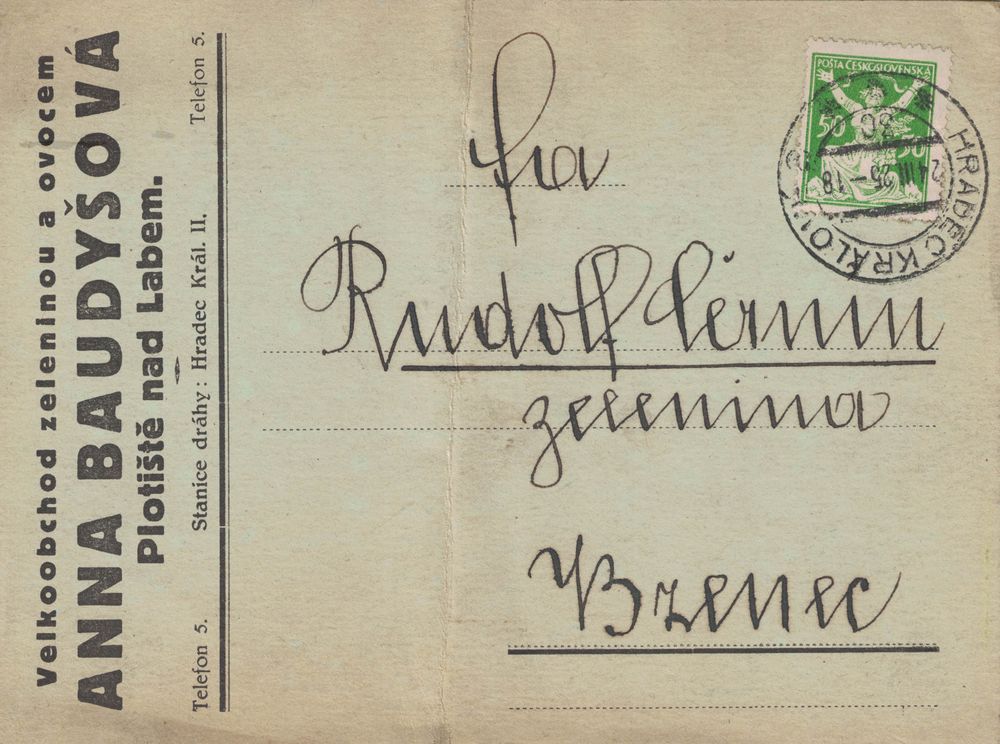 Velkoobchod zeleninou a ovocem
ANNA BAUDYŠOVÁ
Plotiště nad Labem.
Telefon 5. Stanice dráhy: Hradec Král. II. Telefon 5.
POŠTA ČESKOSLOVENSKÁ
50 50
HRADEC KRÁLOVÉ
24 III 25 - 18
Fa
Rudolf Černín
zelenina
Bzenec